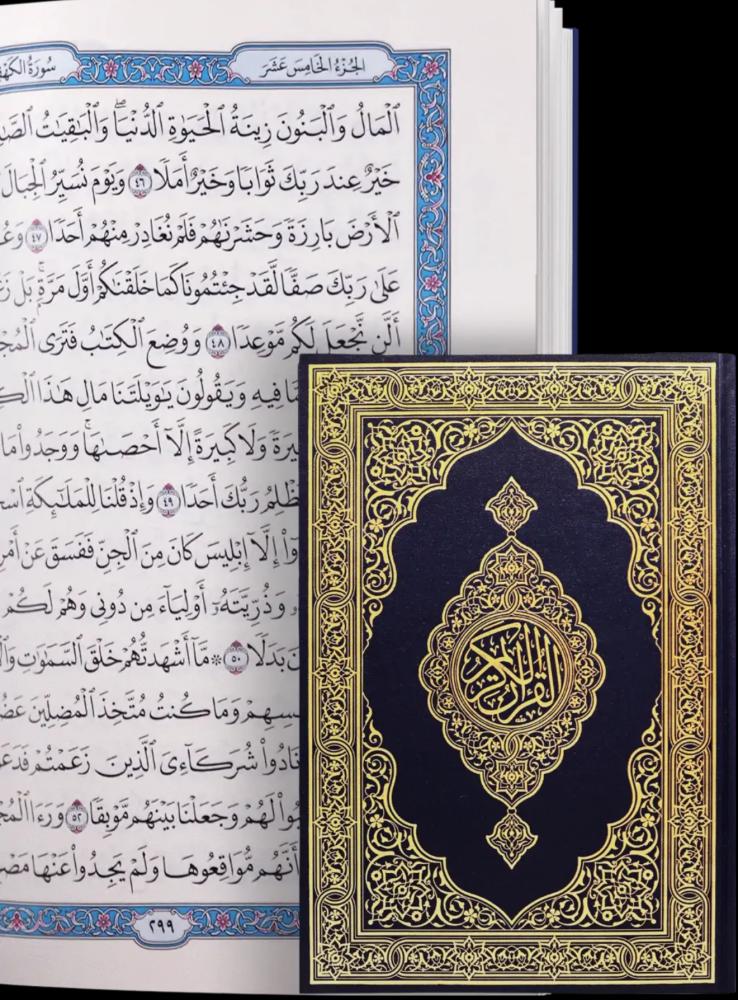 الجزء الخامس عشر
سورة الكهف
ٱلۡمَالُ وَٱلۡبَنُونَ زِينَةُ ٱلۡحَيَوٰةِ ٱلدُّنۡيَاۖ وَٱلۡبَٰقِيَٰتُ
خَيۡرٌ عِندَ رَبِّكَ ثَوَابٗا وَخَيۡرٌ أَمَلٗا ٤٦ وَيَوۡمَ نُسَيِّرُ ٱلۡجِبَالَ
ٱلۡأَرۡضَ بَارِزَةٗ وَحَشَرۡنَٰهُمۡ فَلَمۡ نُغَادِرۡ مِنۡهُمۡ أَحَدٗا ٤٧
عَلَىٰ رَبِّكَ صَفّٗا لَّقَدۡ جِئۡتُمُونَا كَمَا خَلَقۡنَٰكُمۡ أَوَّلَ مَرَّةِۭۚ بَلۡ
أَلَّن نَّجۡعَلَ لَكُم مَّوۡعِدٗا ٤٨ وَوُضِعَ ٱلۡكِتَٰبُ فَتَرَى
فِيهِ وَيَقُولُونَ يَٰوَيۡلَتَنَا مَالِ هَٰذَا
وَلَا كَبِيرَةً إِلَّآ أَحۡصَىٰهَاۚ وَوَجَدُواْ مَا
رَبُّكَ أَحَدٗا ٤٩ وَإِذۡ قُلۡنَا لِلۡمَلَٰٓئِكَةِ
إِلَّآ إِبۡلِيسَ كَانَ مِنَ ٱلۡجِنِّ فَفَسَقَ عَنۡ
وَذُرِّيَّتَهُۥٓ أَوۡلِيَآءَ مِن دُونِي وَهُمۡ لَكُمۡ
بَدَلٗا ٥٠ ۞ مَّآ أَشۡهَدتُّهُمۡ خَلۡقَ ٱلسَّمَٰوَٰتِ
وَمَا كُنتُ مُتَّخِذَ ٱلۡمُضِلِّينَ
شُرَكَآءِيَ ٱلَّذِينَ زَعَمۡتُمۡ
لَهُمۡ وَجَعَلۡنَا بَيۡنَهُم مَّوۡبِقٗا ٥٢ وَرَءَا
أَنَّهُم مُّوَاقِعُوهَا وَلَمۡ يَجِدُواْ عَنۡهَا
٢٩٩
القرآن الكريم